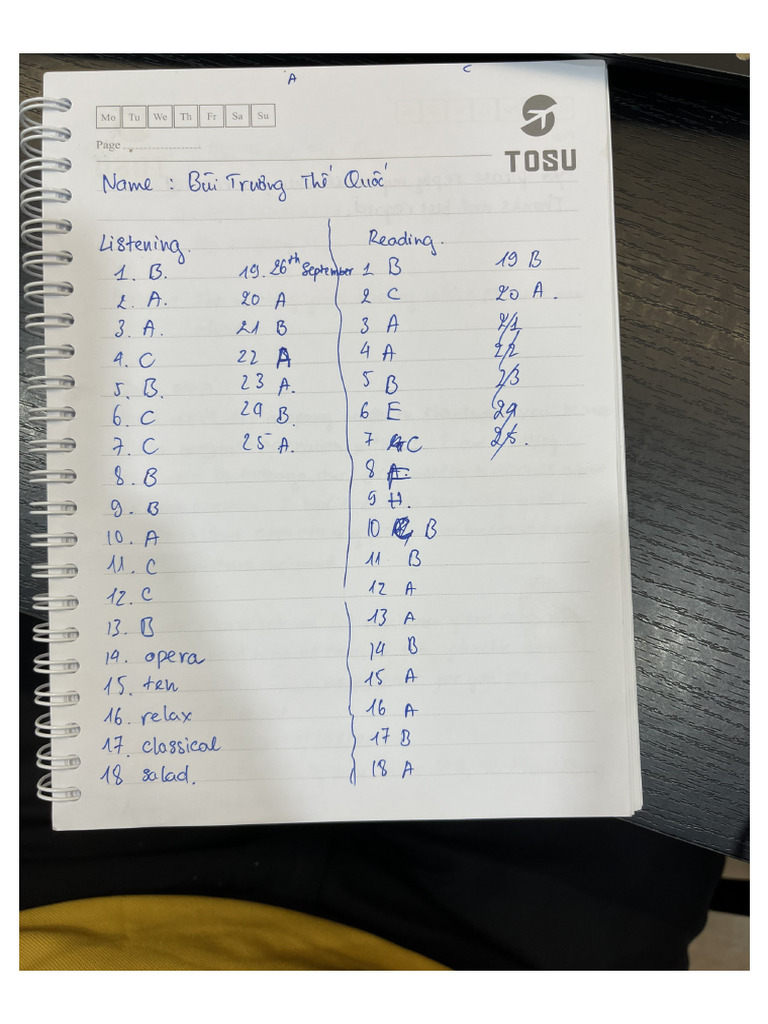 A
C
Mo Tu We Th Fr Sa Su
Page
TOSU
Name : Bùi Trường Thế Quốc
Listening.
1. B.
2. A.
3. A.
4. C
5. B.
6. C
7. C
8. B
9. B
10. A
11. C
12. C
13. B
14. opera
15. ten
16. relax
17. classical
18 salad.
19. 26th September
20 A
21 B
22 A
23 A.
24 B.
25 A.
Reading.
1 B
2 C
3 A
4 A
5 B
6 E
7 C
8 F
9 H.
10 B
11 B
12 A
13 A
14 B
15 A
16 A
17 B
18 A
19 B
20 A.
21
22
23
24
25.